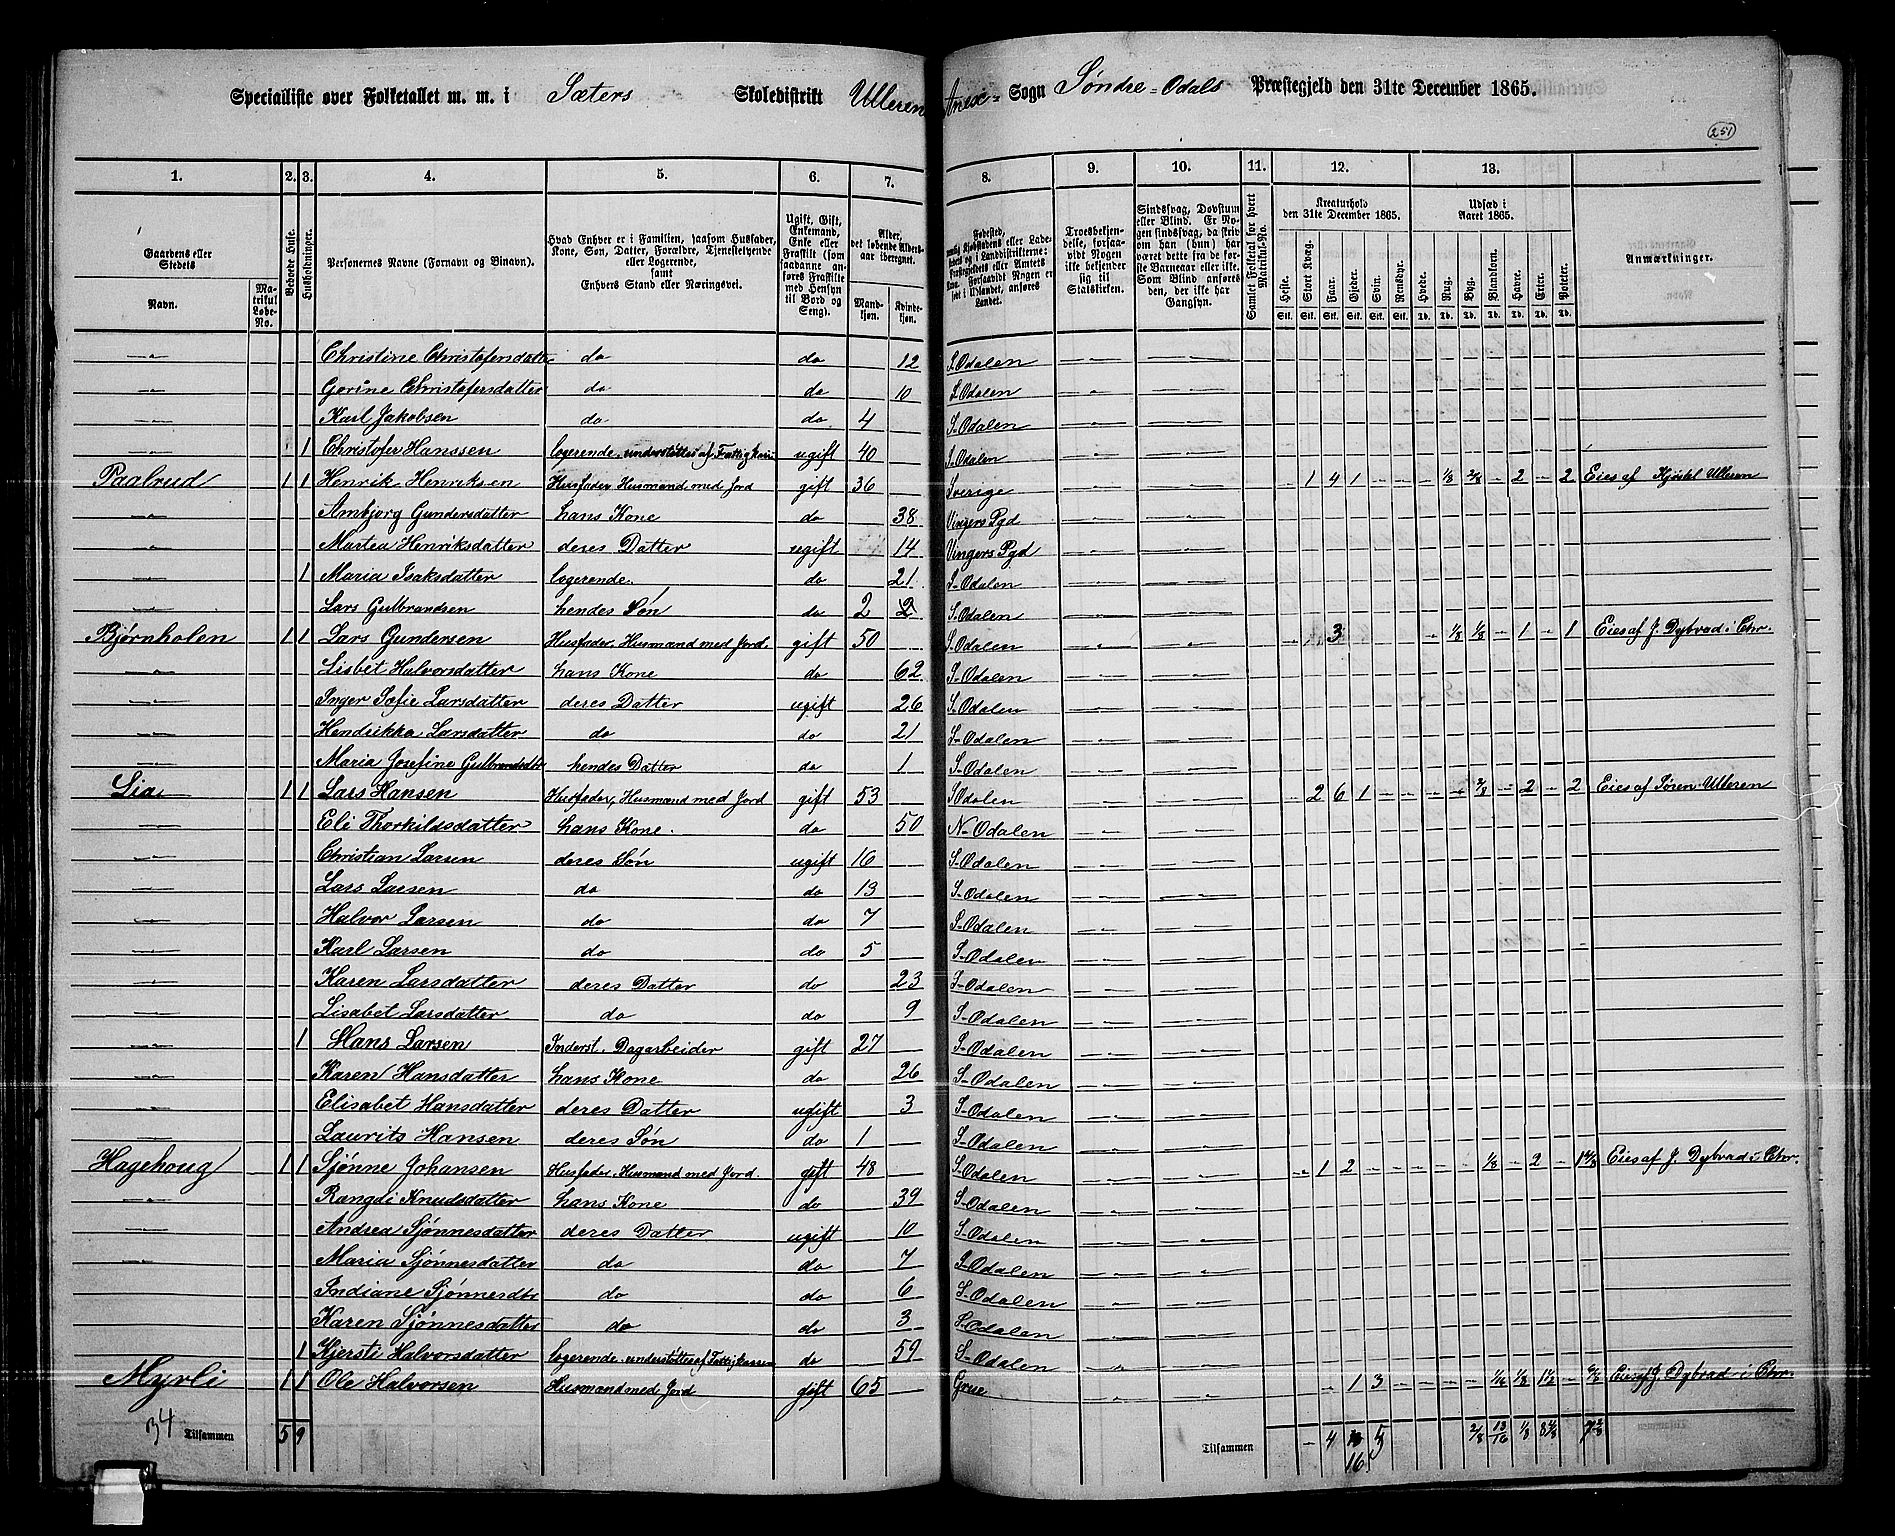 Specialliste over Folketallet m. m. i Sæters Skoledistrikt Ulleren Anex- Sogn Søndre-Odals Præstegjeld den 31te December 1865.
251
1. 2. 3. 4. 5. 6. 7. 8. 9. 10. 11. 12. 13.
Gaardens eller Stedets Navn. Matrikul Løbe-No. Beboede Huse. Husholdninger. Personernes Navne (Fornavn og Binavn). Hvad Enhver er i Familien, saasom Husfader, Kone, Søn, Datter, Forældre, Tjenestetyende eller Logerende, samt Enhvers Stand eller Næringsvei. Ugift, Gift, Enkemand, Enke eller Fraskilt (som saadanne anføres Fraskilte med Hensyn til Bord og Seng). Alder, det løbende Aldersaar iberegnet. Mandkjøn. Kvindekjøn.
Fødested, Troesbekjendelse, forsaavidt Nogen ikke bekjender sig til Statskirken. Sindssvag, Døvstum eller Blind. Er Nogen sindssvag, da skrives om han (hun) har været dette fra de første Barneaar eller ikke. Som Blind anføres den, der ikke har Gangsyn. Samlet Folketal for hvert Matrikul-No. Kreaturhold den 31te December 1865. Udsæd i Aaret 1865. Anmærkninger.
Heste. Stort Kvæg. Faar. Gjeder. Svin. Rensdyr. Hvede. Rug. Byg. Blandkorn. Havre. Erter. Poteter.
Christine Christofersdatter do do 12 S-Odalen
Gorine Christofersdatter do do 10 S-Odalen
Karl Jakobsen do do 4 S-Odalen
1 Christofer Hanssen logerende, understøttes af Fattigkass. ugift 40 S-Odalen
Paalrud 1 1 Henrik Henriksen Husfader, Husmand med Jord gift 36 Sverige 1 4 1 1/8 2/8 2 2 Eies af Ulleren
Gundersdatter hans Kone do 38 Vingers Pgd
Martea Henriksdatter deres Datter ugift 14 Vingers Pgd
1 Maria Isaksdatter logerende. do 21 S-Odalen
Lars Gulbrandsen hendes Søn do 2 2 S-Odalen
Bjørnholen 1 1 Lars Gundersen Husfader, Husmand med Jord. gift 50 S-Odalen 3 1/8 1/8 1 1 Eies af J. Dybvad i Chr.
Lisbet Halvorsdatter hans Kone do 62 S-Odalen
Inger Sofie Larsdatter deres Datter ugift 26 S-Odalen
Hendrikka Larsdatter do do 21 S-Odalen
Maria Josefine Gulbrandsdtr hendes Datter do 1 S-Odalen
Lia 1 1 Lars Hansen Husfader, Husmand med Jord gift 53 S Odalen 2 6 1 2/8 2 2 Eies af Søren Ulleren
Eli Thorkildsdatter hans Kone. do 50 N-Odalen
Christian Larsen deres Søn ugift 16 S-Odalen
Lars Larsen do do 13 S-Odalen
Halvor Larsen do do 7 S-Odalen
Karl Larsen do do 5 S-Odalen
Karen Larsdatter deres Datter do 23 S-Odalen
Lisabet Larsdatter do do 9 S-Odalen
1 Hans Larsen Inderst. Dagarbeider gift 27 S-Odalen
Karen Hansdatter hans Kone do 26 S-Odalen
Elisabet Hansdatter deres Datter ugift 3 S-Odalen
Laurits Hansen deres Søn do 1 S-Odalen
Hagehoug 1 1 Sjønne Johansen Husfader. Husmand med Jord. gift 48 S-Odalen 1 2 1/8 2 Eies af J. Dybvad i Chr.
Rangdi Knudsdatter hans Kone do 39 S-Odalen
Andrea Sjønnesdatter deres Datter ugift 10 S-Odalen
Maria Sjønnesdatter do do 7 S-Odalen
Indiane Sjønnesdtr do do 6 S-Odalen
Karen Sjønnesdatter do do 3 S-Odalen
1 Kjersti Halvorsdatter logerende. understøttes af Fattigkassen do 59 S-Odalen
Myrli 1 1 Ole Halvorsen Husmand med Jord gift 65 Grue 1 3 1/16 1/8 1½ Eies af J. Dybvad i Chr.
34 Tilsammen 5 9 Tilsammen 4 16 5 2/8 13/16 1/8